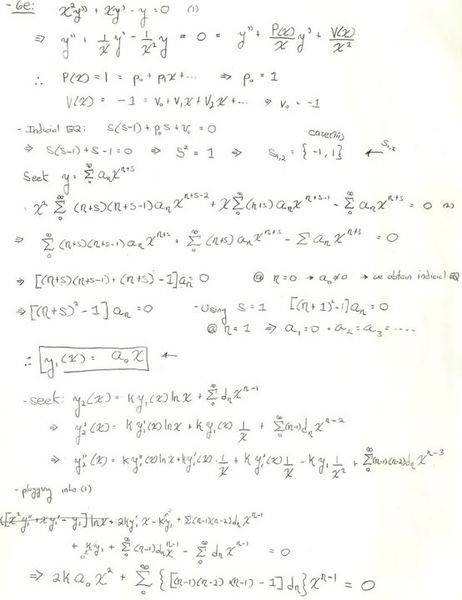 - 6e: x²y'' + xy' - y = 0 (1)
⇒ y'' + 1/x y' - 1/x² y = 0 = y'' + P(x)/x y' + V(x)/x²
∴ P(x) = 1 = p₀ + p₁x + ... ⇒ p₀ = 1
V(x) = -1 = v₀ + v₁x + v₂x + ... ⇒ v₀ = -1
- Indicial EQ: s(s-1) + p₀s + v₀ = 0
⇒ s(s-1) + s - 1 = 0 ⇒ s² = 1 ⇒ s₁,₂ = {-1, 1} case(iii) ← s₁,₂
Seek y = Σ₀^∞ aₙx^(n+s)
· x² Σ₀^∞ (n+s)(n+s-1)aₙx^(n+s-2) + x Σ₀^∞ (n+s)aₙx^(n+s-1) - Σ₀^∞ aₙx^(n+s) = 0 (2)
⇒ Σ₀^∞ (n+s)(n+s-1)aₙx^(n+s) + Σ₀^∞ (n+s)aₙx^(n+s) - Σ aₙx^(n+s) = 0
⇒ [(n+s)(n+s-1) + (n+s) - 1]aₙ = 0 @ n=0 → a₀≠0 → we obtain indicial EQ
⇒ [(n+s)² - 1]aₙ = 0 - Using s = 1 [(n+1)² - 1]aₙ = 0
@ n=1 ⇒ a₁ = 0 = a₂ = a₃ = ....
∴ y₁(x) = a₀x ←
- seek: y₂(x) = ky₁(x) ln x + Σ₀^∞ dₙx^(n-1)
⇒ y₂'(x) = ky₁'(x) ln x + ky₁(x) 1/x + Σ₀^∞ (n-1)dₙx^(n-2)
⇒ y₂''(x) = ky₁''(x) ln x + ky₁'(x) · 1/x + ky₁'(x) 1/x - ky₁ 1/x² + Σ₀^∞ (n-1)(n-2)dₙx^(n-3)
- plugging into (1)
k[x²y₁'' + xy₁' - y₁] ln x + 2ky₁'x - ky₁ + Σ(n-1)(n-2)dₙx^(n-1)
+ ky₁ + Σ₀^∞ (n-1)dₙx^(n-1) - Σ₀^∞ dₙx^(n-1) = 0
⇒ 2ka₀x² + Σ₀^∞ {[(n-1)(n-2) + (n-1) - 1]dₙ} x^(n-1) = 0